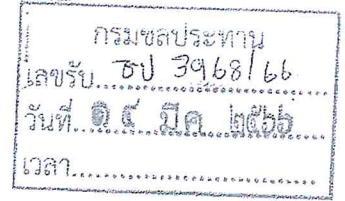 กรมชลประทาน
เลขรับ ธป 3968/66
วันที่ ๑๔ มีค ๒๕๖๖
เวลา